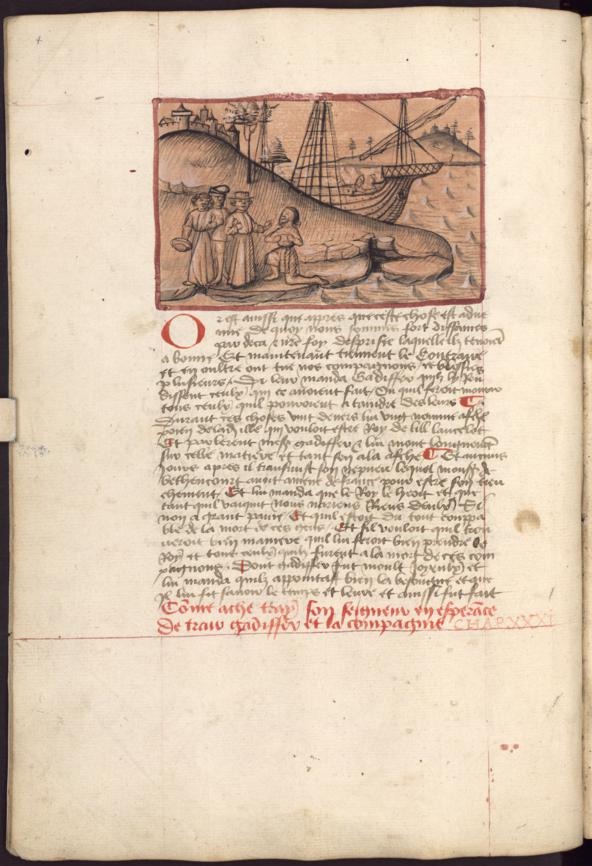 4
Or est ainssi que apprés que ceste chose est adve
nue de quoy nous sommes fort diffamés
par deca e nre foy desprisie laquelle ilz tenoiet
a bonne Et maintenant tiennent le Contraire
et en oultre ont tue nos compaignons et blessies
plusieurs Si leur manda Gadiffer quilz luy ren
dissent ceulx qui ce avoient fait Ou quil feroit mourir
tous ceulx quil pourroient ataindre des leurs
Durant ces choses vint devers lui ung nomme asche
poien de lad ille qui vouloit estre Roy de lill lancelot
Et parlerent mess gadiffer z lui mont longuement
sur celle matiere et tant sen ala asche Et aucuns
jours apres il transmist son nepveu lequel mons de
bethencourt avoit amene de france pour estre son tru
chement Et lui manda que le Roy le heoit et que
tant quil vesquit nous naurions Riens deulx Si
non a grant paine Et quil estoit du tout coupa
ble de la mort de ces gens Et sil vouloit quil trou
veroit bien maniere quil lui feroit bien prendre le
Roy et tous ceulx quilz furent a la mort de ces com
paignons Dont gadiffer fut moult joyeulx et
lui manda quilz appointast bien la besongne et que
il lui fist savoir le temps et leure et ainssi fut fait
Come ache trayt son seigneur en esperace
de trair gadiffer et la compagnie CHAP XXXI